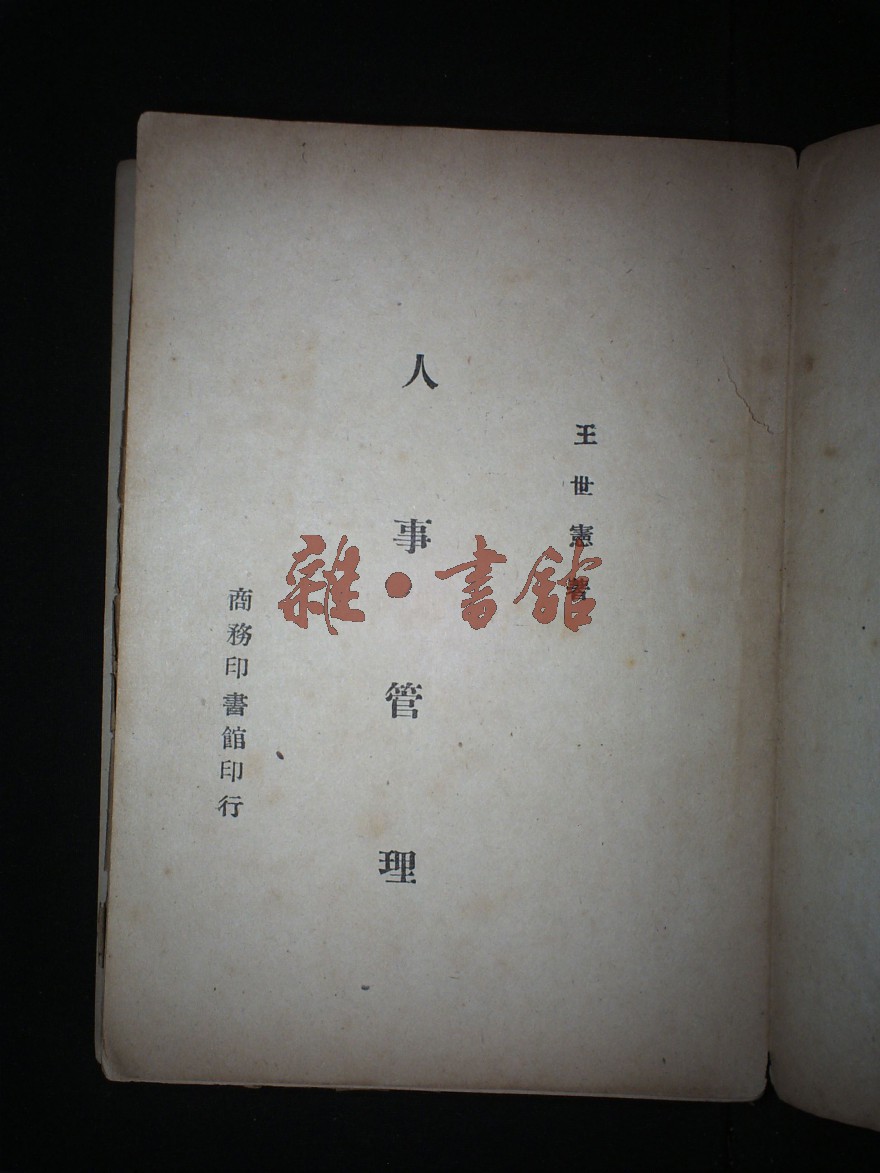 王世憲著
人事管理
商務印書館印行
雜·書館